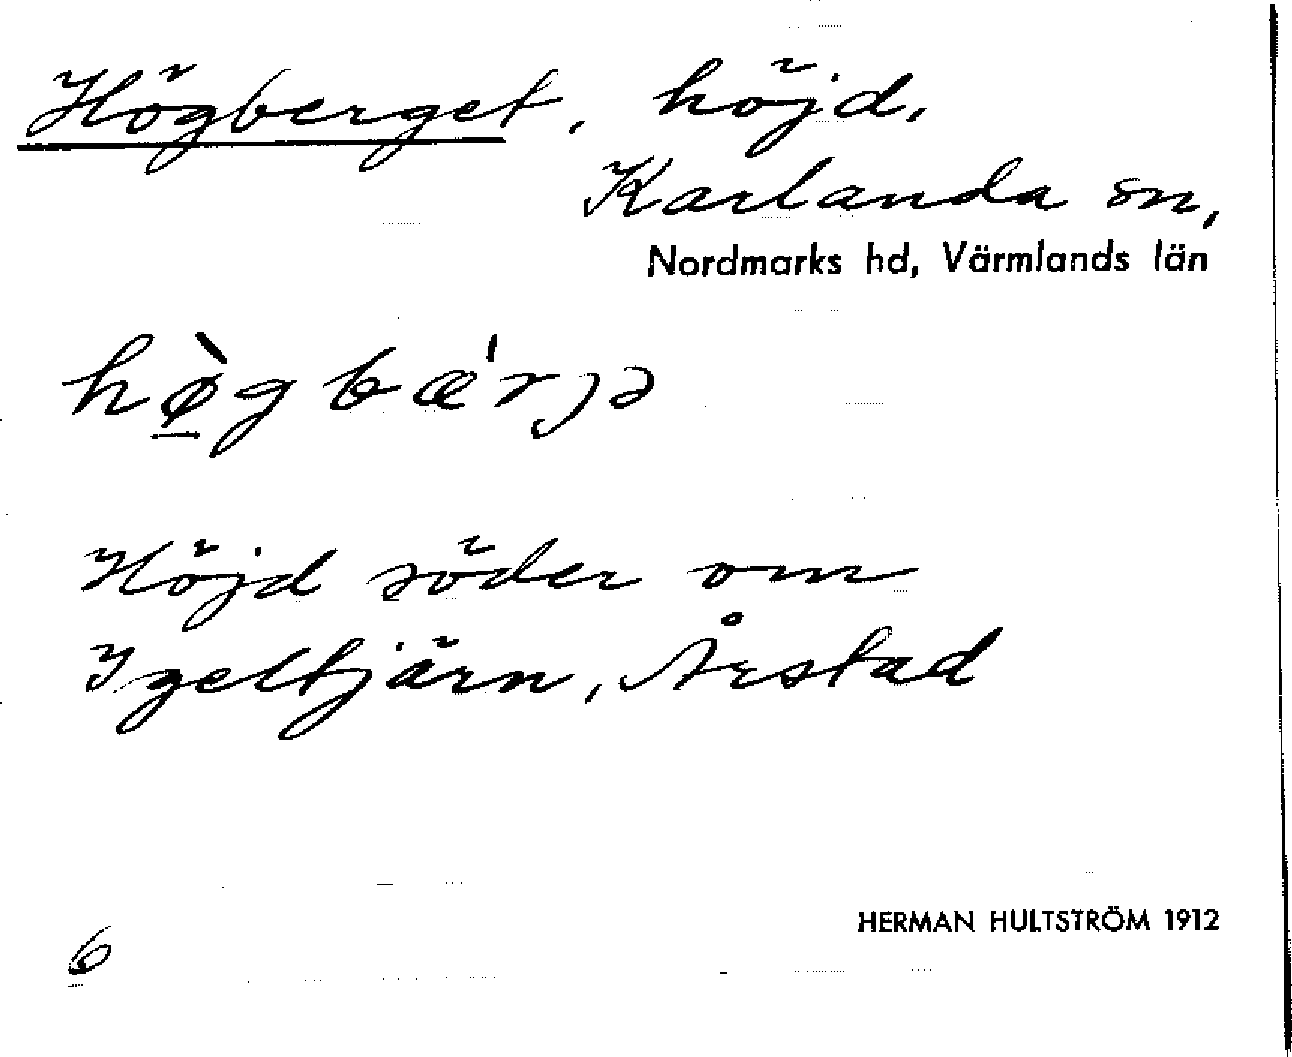 Högberget, höjd,
Karlanda sn,
Nordmarks hd, Värmlands län
hø̠̀gbæ'rjə
Höjd söder om
Igeltjärn, Årstad
HERMAN HULTSTRÖM 1912
6